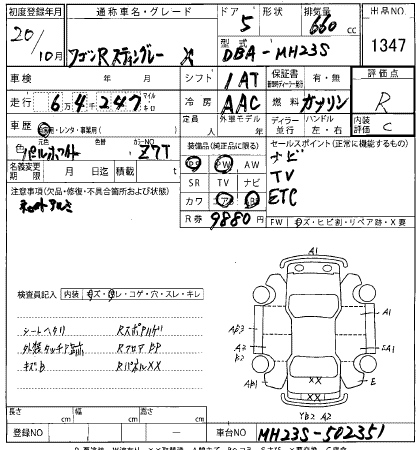 初度登録年月 通称車名・グレード ドア 形状 排気量 出品NO
20/10月 ワゴンR スティングレー X 5 660 cc 1347
型式 DBA-MH23S
車検 年 月 シフト 1AT 保証書 有・無 評価点
走行 6万4千247 マイル キロ 冷房 AAC 燃料 ガソリン R
車歴 レンタ・事業用( ) 定員 人 外車モデル 年 ディーラー 並行 ハンドル 左・右 内装 C
色 パールホワイト 色替 カラーNO Z7T
装備品(純正品に限る) セールスポイント(正常に機能するもの)
名義変更期限 月 日迄 積載 t
PS PW AW ナビ
SR TV ナビ TV
注意事項(欠品・修復・不具合箇所および状態)
カワ エアB ABS ETC
R券 9880円
FW キズ・ヒビ割・リペア跡・X要
検査員記入 内装 キズ・ヨゴレ・コゲ・穴・スレ・キレ
A1
A1
AB3
A2
B2
EA1
AB1
E
XX
XX
YB2 A2
シートヘタリ
外装タッチア跡
キズ
RフロアPP
RパネルXX
長さ cm 幅 cm 高さ cm
登録NO 車台NO MH23S-502351